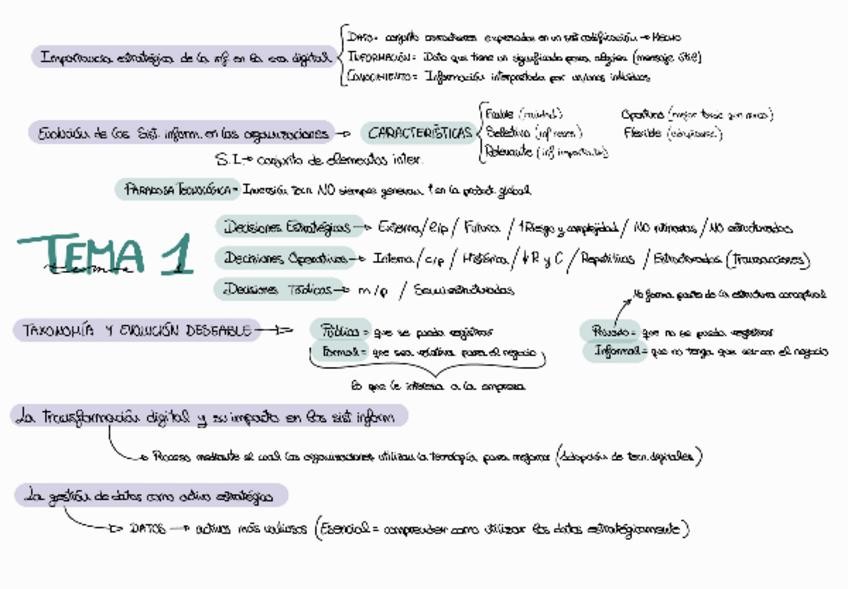 DATO = conjunto caracteres expresados en un sist codificación → HECHO
Importancia estratégica de la inf en la era digital
INFORMACIÓN = Dato que tiene un significado para alguien (mensaje útil)
CONOCIMIENTO = Información interpretada por un/unos individuos
Fiable (calidad) Oportuna
Evolución de los Sist. inform. en las organizaciones → CARACTERÍSTICAS
Selectiva (inf neces.) Flexible
Relevante (inf importante)
S.I → conjunto de elementos inter.
PARADOJA TECNOLÓGICA = Inversión tecn NO siempre generan ↑ en la product. global
TEMA 1
Decisiones Estratégicas → Externa / l/p / Futura / ↑Riesgo y complejidad / NO rutinarias / NO estructuradas
Decisiones Operativas → Interna / c/p / Histórica / ↓ R y C / Repetitivas / Estructuradas (Transacciones)
Decisiones Tácticas → m/p / Semiestructuradas
No forma parte de la estructura conceptual
TAXONOMÍA Y EVOLUCIÓN DESEABLE → Pública = que se pueda registrar Privada = que no se pueda registrar
Formal = que sea relativa para el negocio Informal = que no tenga que ver con el negocio
lo que le interesa a la empresa
La transformación digital y su impacto en los sist inform
Proceso mediante el cual las organizaciones utilizan la tecnología para mejorar (Adopción de tecn. digitales)
La gestión de datos como activo estratégico
DATOS → activos más valiosos (Esencial = comprender como utilizar los datos estratégicamente)